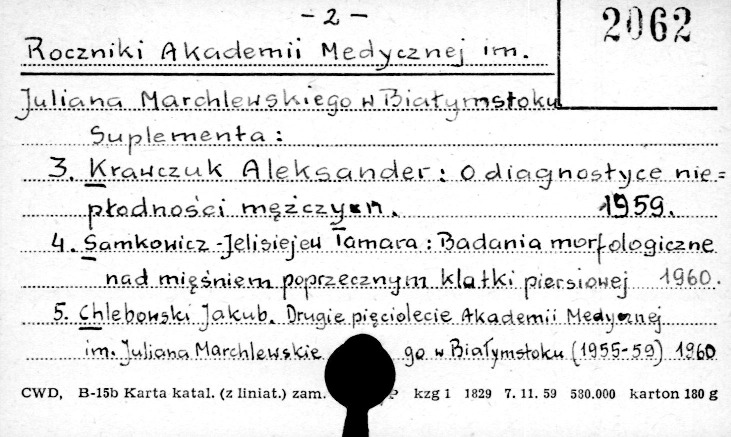 - 2 -
2062
Roczniki Akademii Medycznej im.
Juliana Marchlewskiego w Białymstoku
Suplementa:
3. Krawczuk Aleksander: O diagnostyce nie=
płodności mężczyzn. 1959.
4. Samkowicz-Jelisiejew Tamara: Badania morfologiczne
nad mięśniem poprzecznym klatki piersiowej 1960.
5. Chlebowski Jakub. Drugie pięciolecie Akademii Medycznej
im. Juliana Marchlewskie go w Białymstoku (1955-59) 1960
CWD, B-15b Karta katal. (z liniat.) zam. kzg 1 1829 7. 11. 59 580.000 karton 180 g